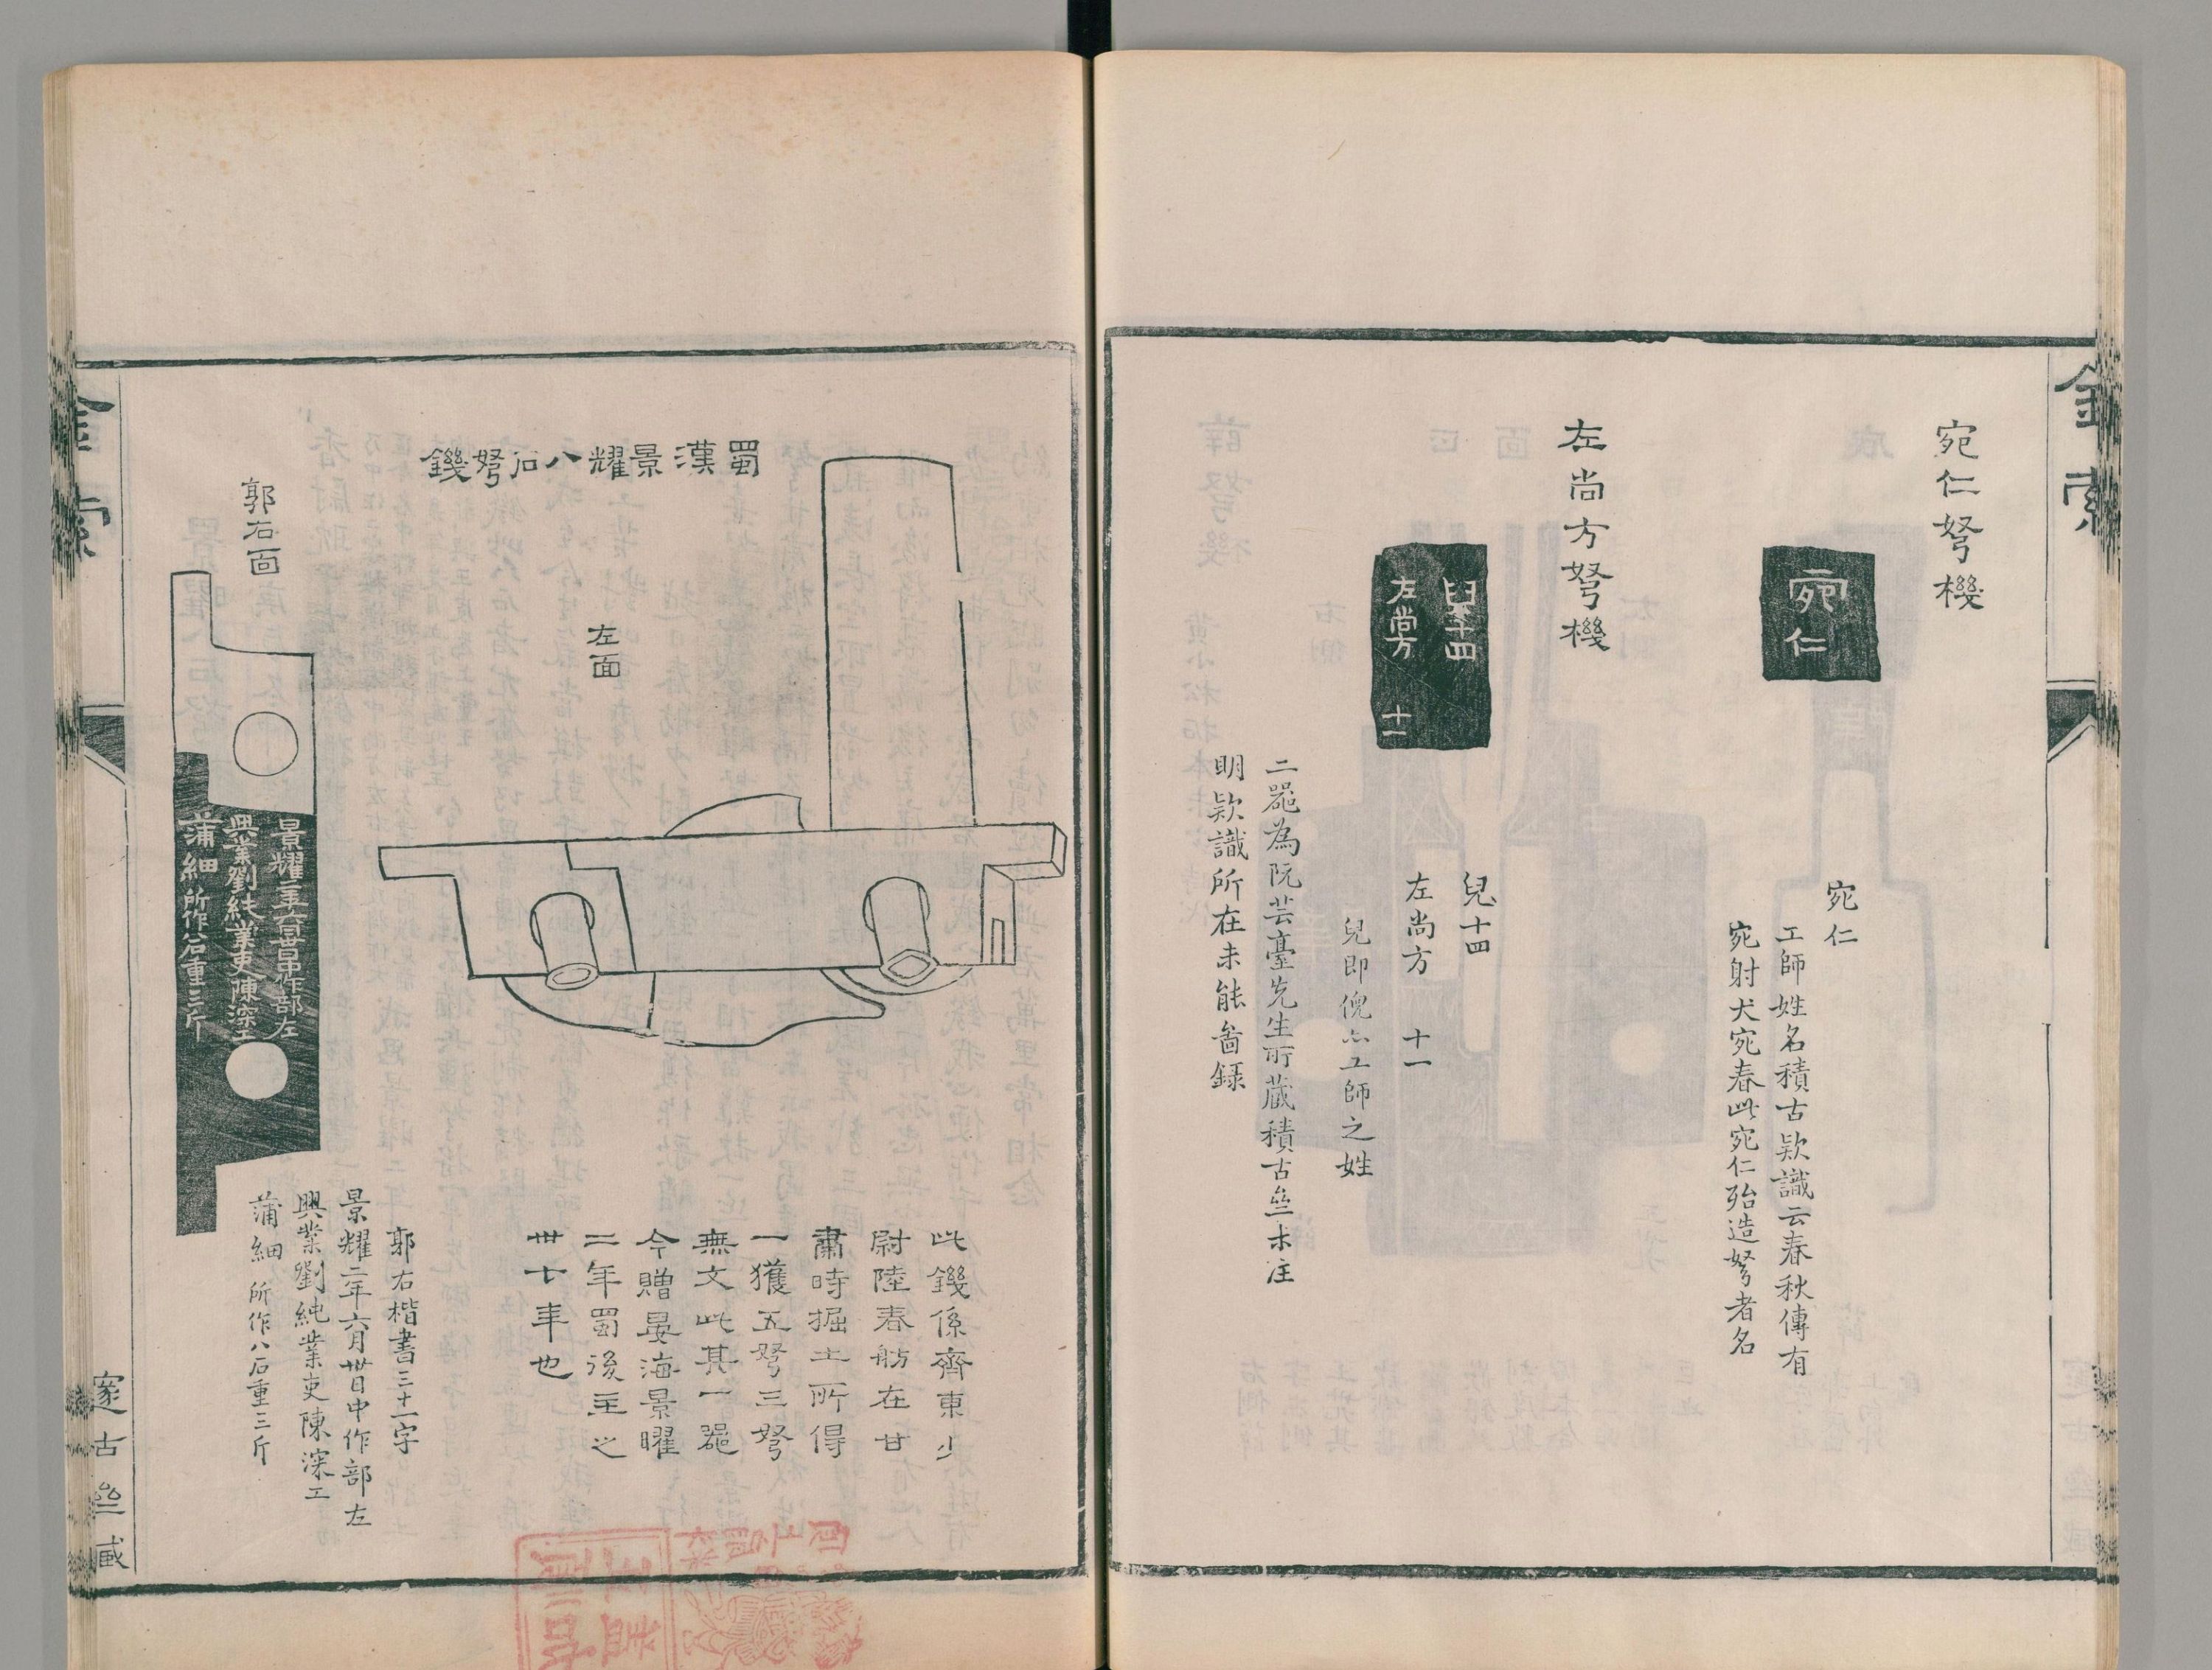 金索
宛仁弩機
宛仁
宛仁
工師姓名積古欵識云春秋傳有
宛射犬宛春此宛仁殆造弩者名
左尚方弩機
兒十四
左尚方 十一
兒十四
左尚方 十一
兒即倪亦工師之姓
二器為阮芸臺先生所藏積古亝未注
明欵識所在未能啚錄
蜀漢景耀八石弩鐖
左面
此鐖係齊東少
尉陸春舫在甘
肅時掘土所得
一獲五弩三弩
無文此其一器
今贈晏海景曜
二年蜀後主之
卅七年也
郭右面
景耀二年六月卅日中作部左
興業劉純業吏陳深工
蒲細 所作八石重三斤
郭右楷書三十一字
景耀二年六月卅日中作部左
興業劉純業吏陳深工
蒲細 所作八石重三斤
金索
邃古亝藏